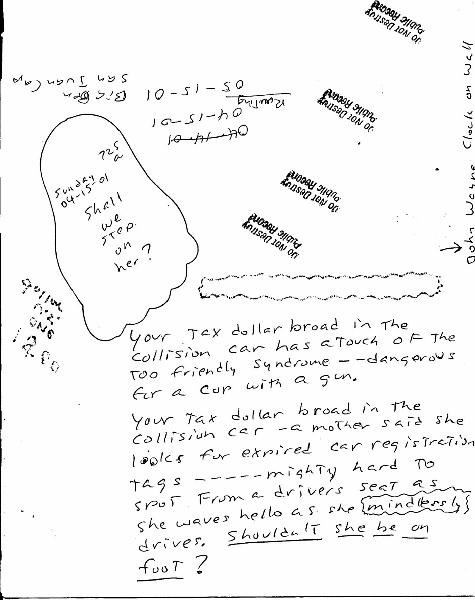 Do Not Destroy
Public Record
Do Not Destroy
Public Record
Do Not Destroy
Public Record
Do Not Destroy
Public Record
John Wayne Clock on wall
San Juan Cap
05-15-01
Routing
04-15-01
04-14-01
725
a
Sunday
04-15-01
Shall
we
step
on
her?
Your tax dollar broad in the
collision car has a touch of the
too friendly syndrome -- dangerous
for a cop with a gun.
Your tax dollar broad in the
collision car - a mother said she
looks for expired car registration
tags ----- mighty hard to
spot from a drivers seat as
she waves hello as she {mindlessly}
drives. Shouldn't she be on
foot?